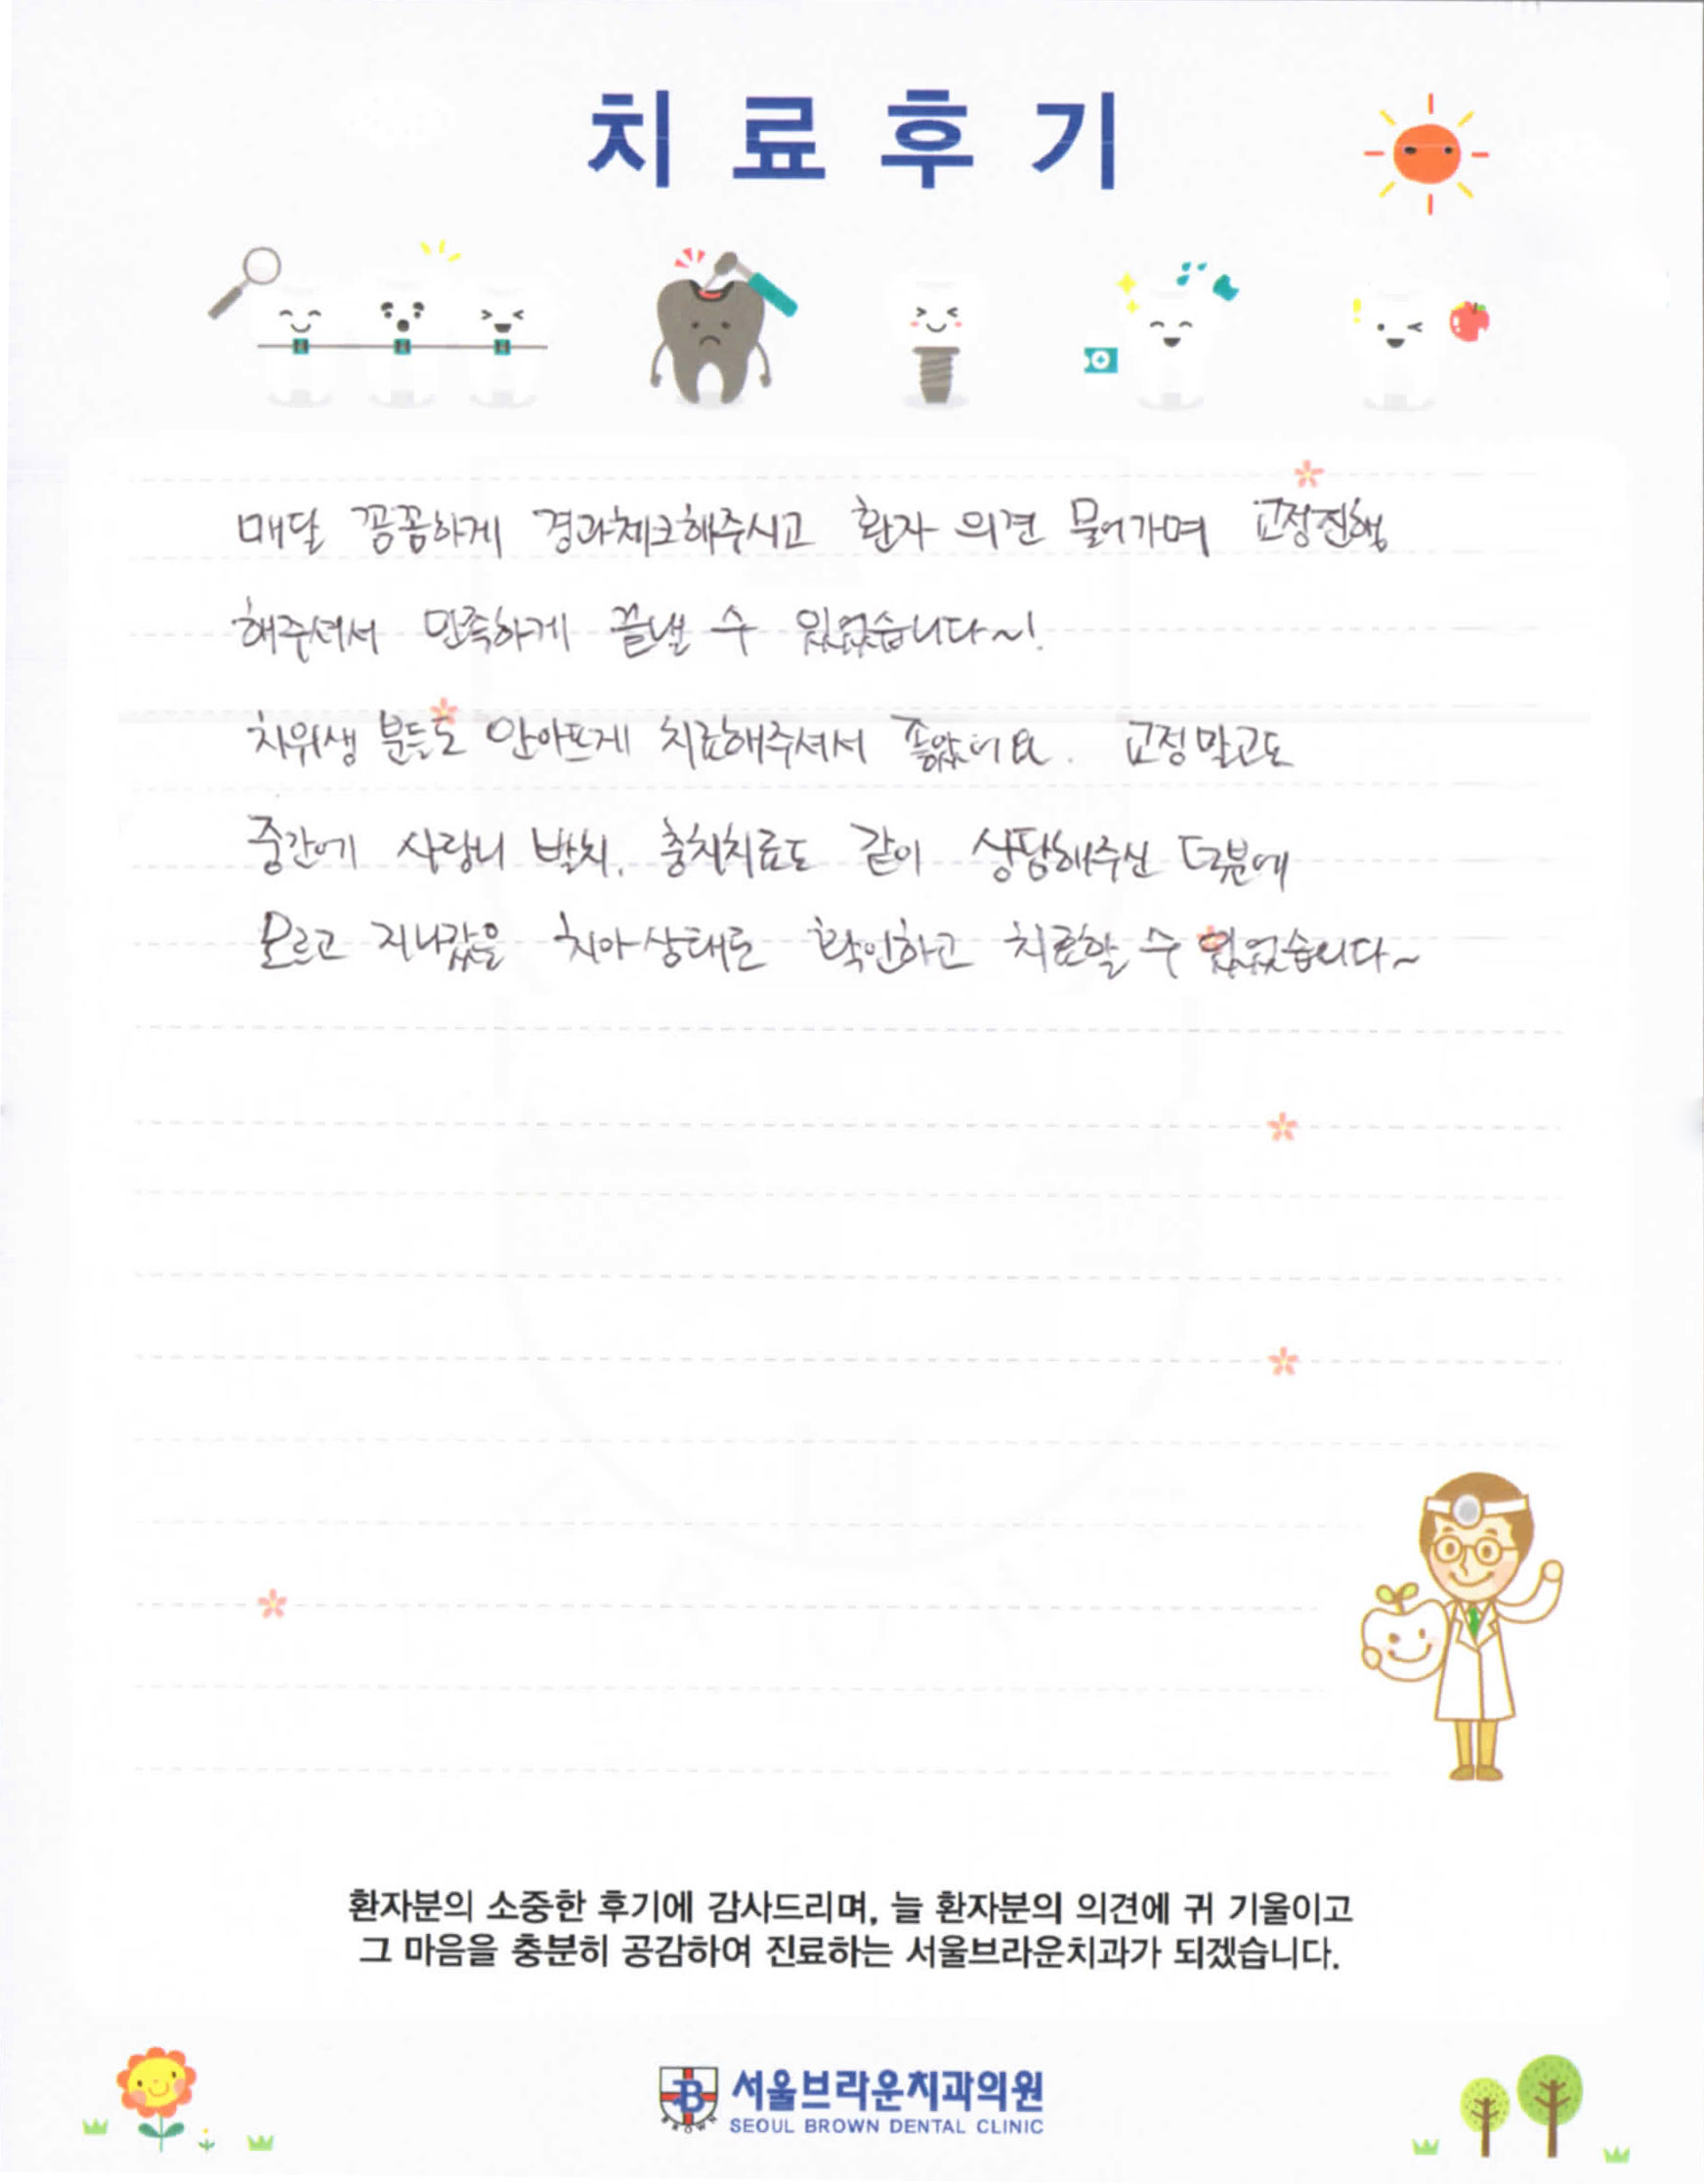 치료후기
매달 꼼꼼하게 경과체크해주시고 환자 의견 물어가며 교정진행
해주셔서 만족하게 끝낼 수 있었습니다~!
치위생 분들도 안아프게 치료해주셔서 좋았어요. 교정말고도
중간에 사랑니 발치, 충치치료도 같이 상담해주신 덕분에
모르고 지나갔을 치아상태도 확인하고 치료할 수 있었습니다~
환자분의 소중한 후기에 감사드리며, 늘 환자분의 의견에 귀 기울이고
그 마음을 충분히 공감하여 진료하는 서울브라운치과가 되겠습니다.
B 서울브라운치과의원
SEOUL BROWN DENTAL CLINIC